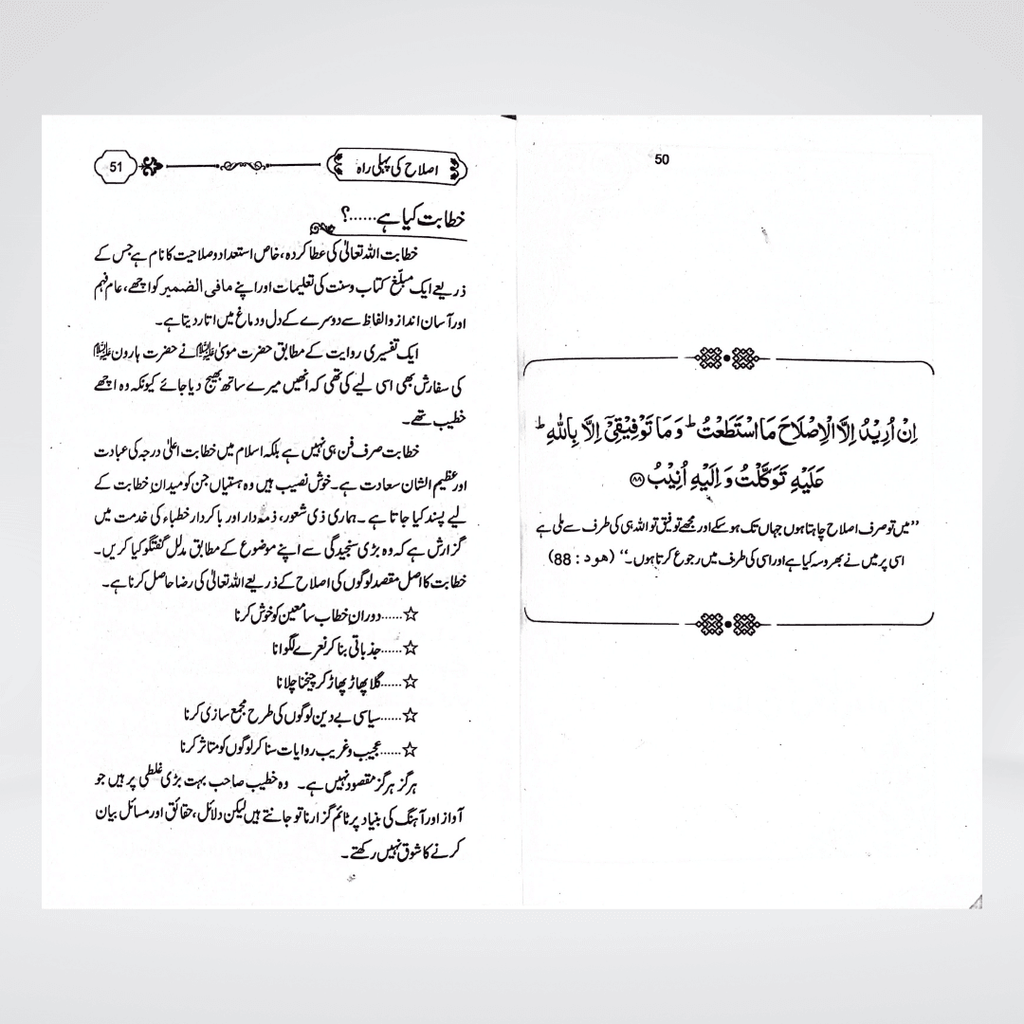 50
اِنْ اُرِيْدُ اِلَّا الْاِصْلَاحَ مَا اسْتَطَعْتُ ؕ وَ مَا تَوْفِيْقِيْۤ اِلَّا بِاللّٰهِ ؕ
عَلَيْهِ تَوَكَّلْتُ وَ اِلَيْهِ اُنِيْبُ ﴿۸۸﴾
”میں تو صرف اصلاح چاہتا ہوں جہاں تک ہو سکے اور مجھے توفیق تو اللہ ہی کی طرف سے ملی ہے
اسی پر میں نے بھروسہ کیا ہے اور اسی کی طرف میں رجوع کرتا ہوں۔“ (هود : 88)
اصلاح کی پہلی راہ 51
خطابت کیا ہے......؟
خطابت اللہ تعالیٰ کی عطا کردہ، خاص استعداد و صلاحیت کا نام ہے جس کے
ذریعے ایک مبلّغ کتاب و سنت کی تعلیمات اور اپنے مافی الضمیر کو اچھے، عام فہم
اور آسان انداز و الفاظ سے دوسرے کے دل و دماغ میں اتار دیتا ہے۔
ایک تفسیری روایت کے مطابق حضرت موسیٰ علیہ السلام نے حضرت ہارون علیہ السلام
کی سفارش بھی اسی لیے کی تھی کہ انھیں میرے ساتھ بھیج دیا جائے کیونکہ وہ اچھے
خطیب تھے۔
خطابت صرف فن ہی نہیں ہے بلکہ اسلام میں خطابت اعلیٰ درجہ کی عبادت
اور عظیم الشان سعادت ہے۔ خوش نصیب ہیں وہ ہستیاں جن کو میدانِ خطابت کے
لیے پسند کیا جاتا ہے۔ ہماری ذی شعور، ذمہ دار اور باکردار خطباء کی خدمت میں
گزارش ہے کہ وہ بڑی سنجیدگی سے اپنے موضوع کے مطابق مدلل گفتگو کیا کریں۔
خطابت کا اصل مقصد لوگوں کی اصلاح کے ذریعے اللہ تعالیٰ کی رضا حاصل کرنا ہے۔
☆......دورانِ خطاب سامعین کو خوش کرنا
☆......جذباتی بنا کر نعرے لگوانا
☆......گلا پھاڑ پھاڑ کر چیخنا چلانا
☆......سیاسی بے دین لوگوں کی طرح مجمع سازی کرنا
☆......عجیب و غریب روایات سنا کر لوگوں کو متاثر کرنا
ہرگز ہرگز مقصود نہیں ہے۔ وہ خطیب صاحب بہت بڑی غلطی پر ہیں جو
آواز اور آہنگ کی بنیاد پر ٹائم گزارنا تو جانتے ہیں لیکن دلائل، حقائق اور مسائل بیان
کرنے کا شوق نہیں رکھتے۔